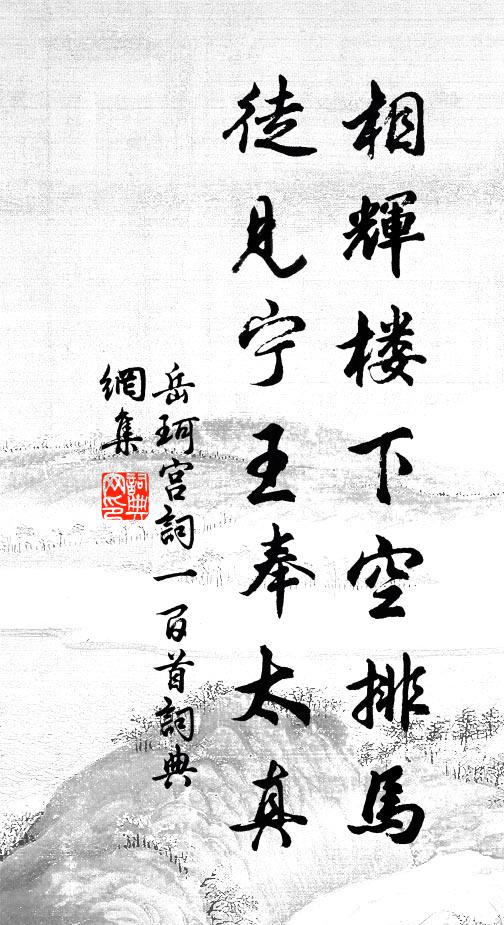 相輝楼下空排馬
徒見宁王奉太真
岳珂宫詞一百首詞典
網集
詞典
网印